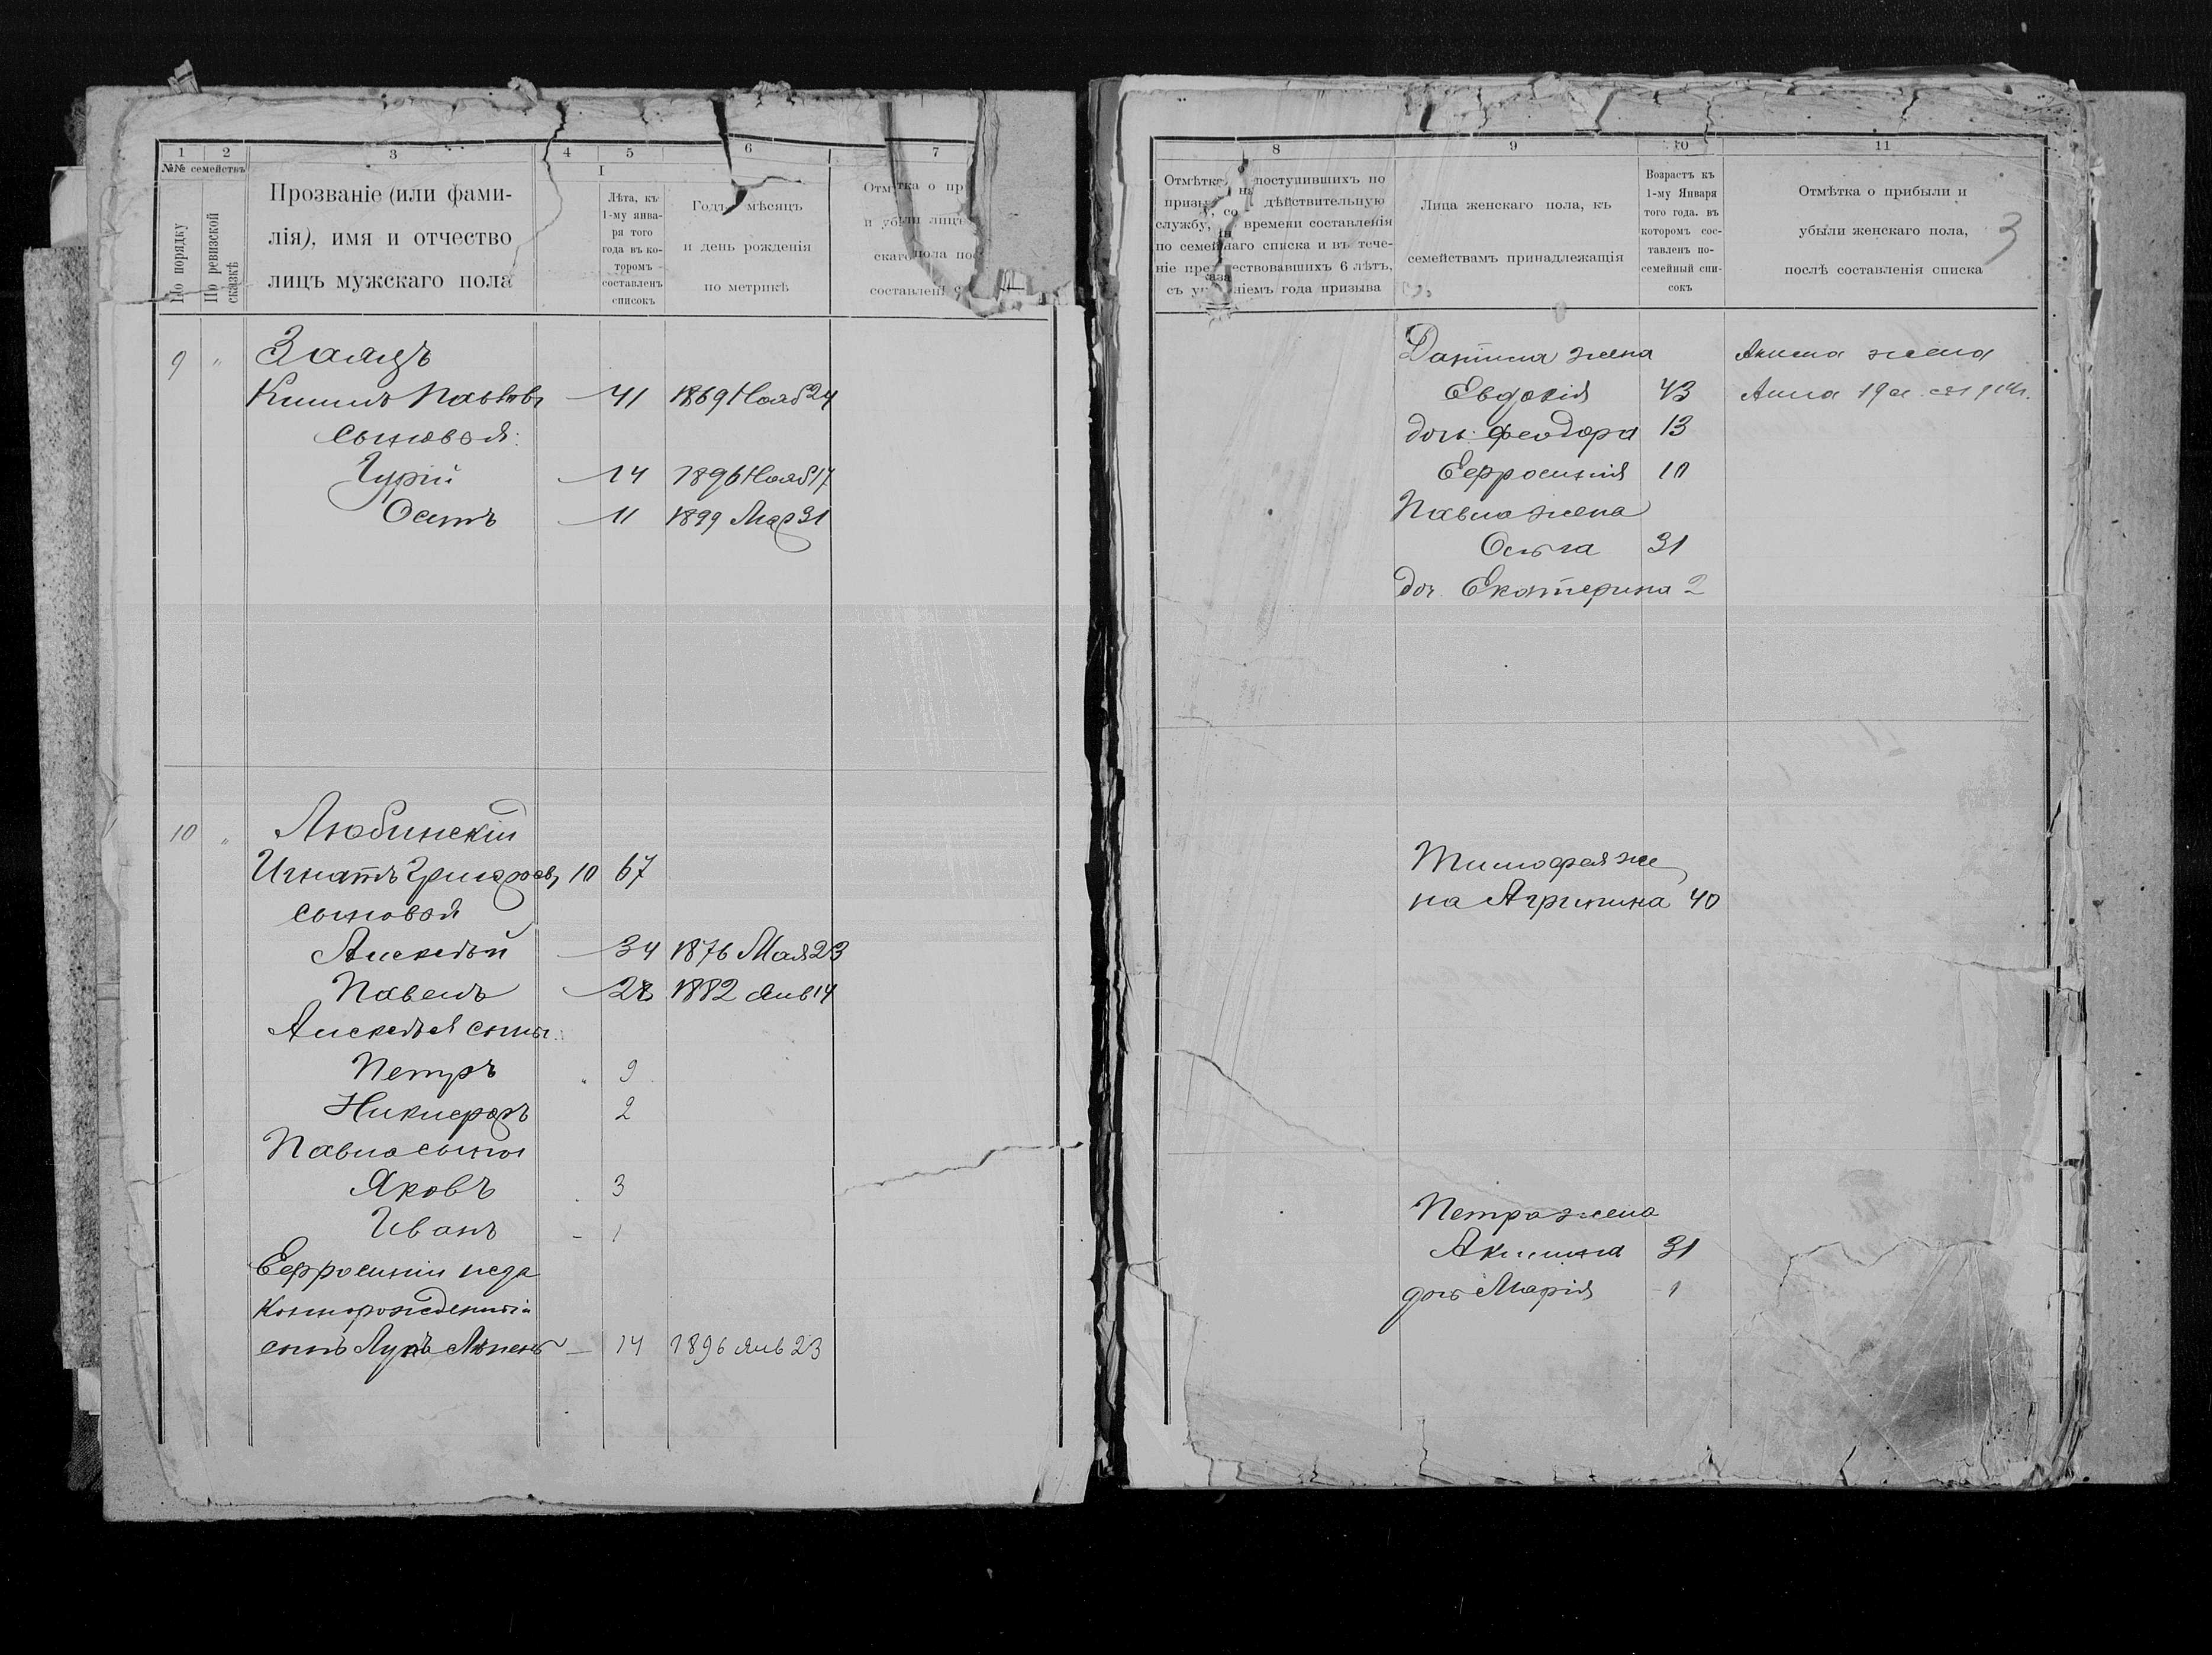 1 2 3 4 5 6 7
№№ семействъ
По порядку
По ревизской сказкѣ
Прозваніе (или фами-
лія), имя и отчество
лицъ мужскаго пола
I
Лѣта, къ
1-му янва-
ря того
года въ ко-
торомъ
составленъ
списокъ
Годъ, мѣсяцъ
и день рожденія
по метрикѣ
Отмѣтка о пр
и убыли лицъ
скаго пола по
составлені
9 " Заяцъ
41 1869 Нояб 24
сыновья:
Гурій — 14 1896 Нояб 17
Осипъ — 11 1899 Мар 31
10 " Любинскій
Игнатъ Григоров, 10 67
сыновья
Алексѣй — 34 1876 Мая 23
Павелъ — 28 1882 Янв 14
Алексѣя сыны:
Петръ " 9
Никифоръ 2
Павла сыны
Яковъ 3
Иванъ - 1
Ефросиніи неза
коннорожденный
сынъ — 14 1896 Янв 23
8 9 10 11
Отмѣтка о поступившихъ по
призыву на дѣйствительную
службу, со времени составленія
по семейнаго списка и въ тече-
ніе предшествовавшихъ 6 лѣтъ,
съ указаніемъ года призыва
Лица женскаго пола, къ
семействамъ принадлежащія
Возрастъ къ
1-му Января
того года, въ
которомъ сос-
тавленъ по-
семейный спи-
сокъ
Отмѣтка о прибыли и
убыли женскаго пола,
послѣ составленія списка
3
Данила жена Акима жена
Евдокія 43 Анна 19
дочь Феодора 13
Ефросинія 10
Павла жена
Ольга 31
доч Екатерина 2
Тимофея же
на Агрипина 40
Петра жена
Акилина 31
дочь Марія - 1